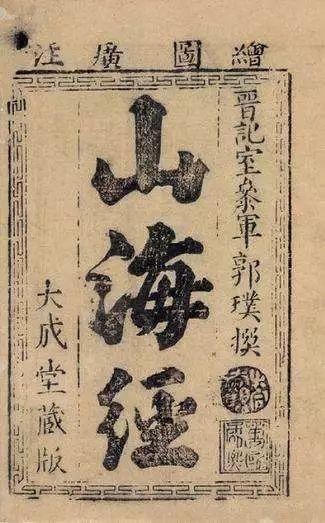 繪圖廣注
晉記室參軍郭璞撰
山海經
大成堂藏版